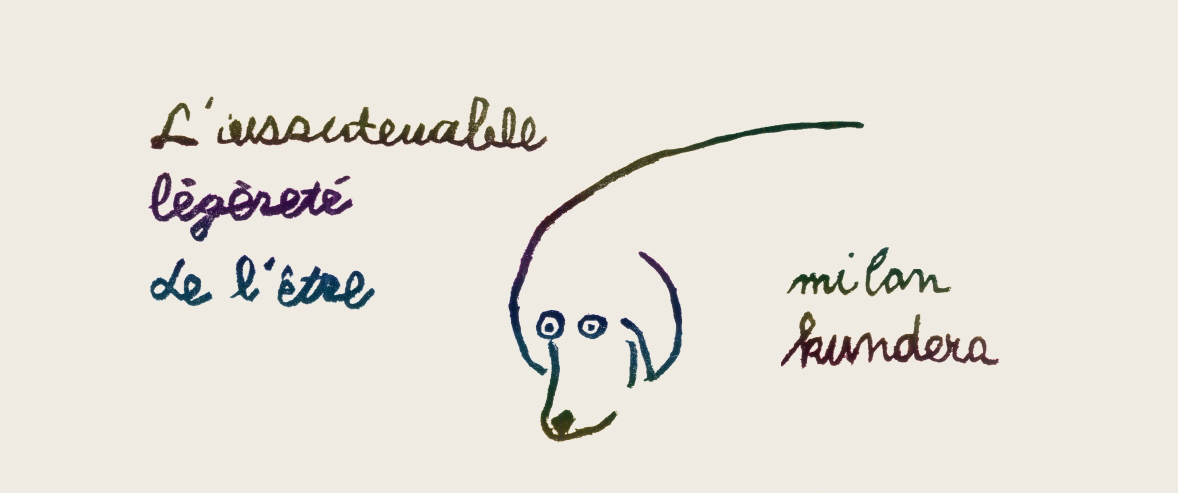 L'insoutenable
légèreté
de l'être
milan
kundera